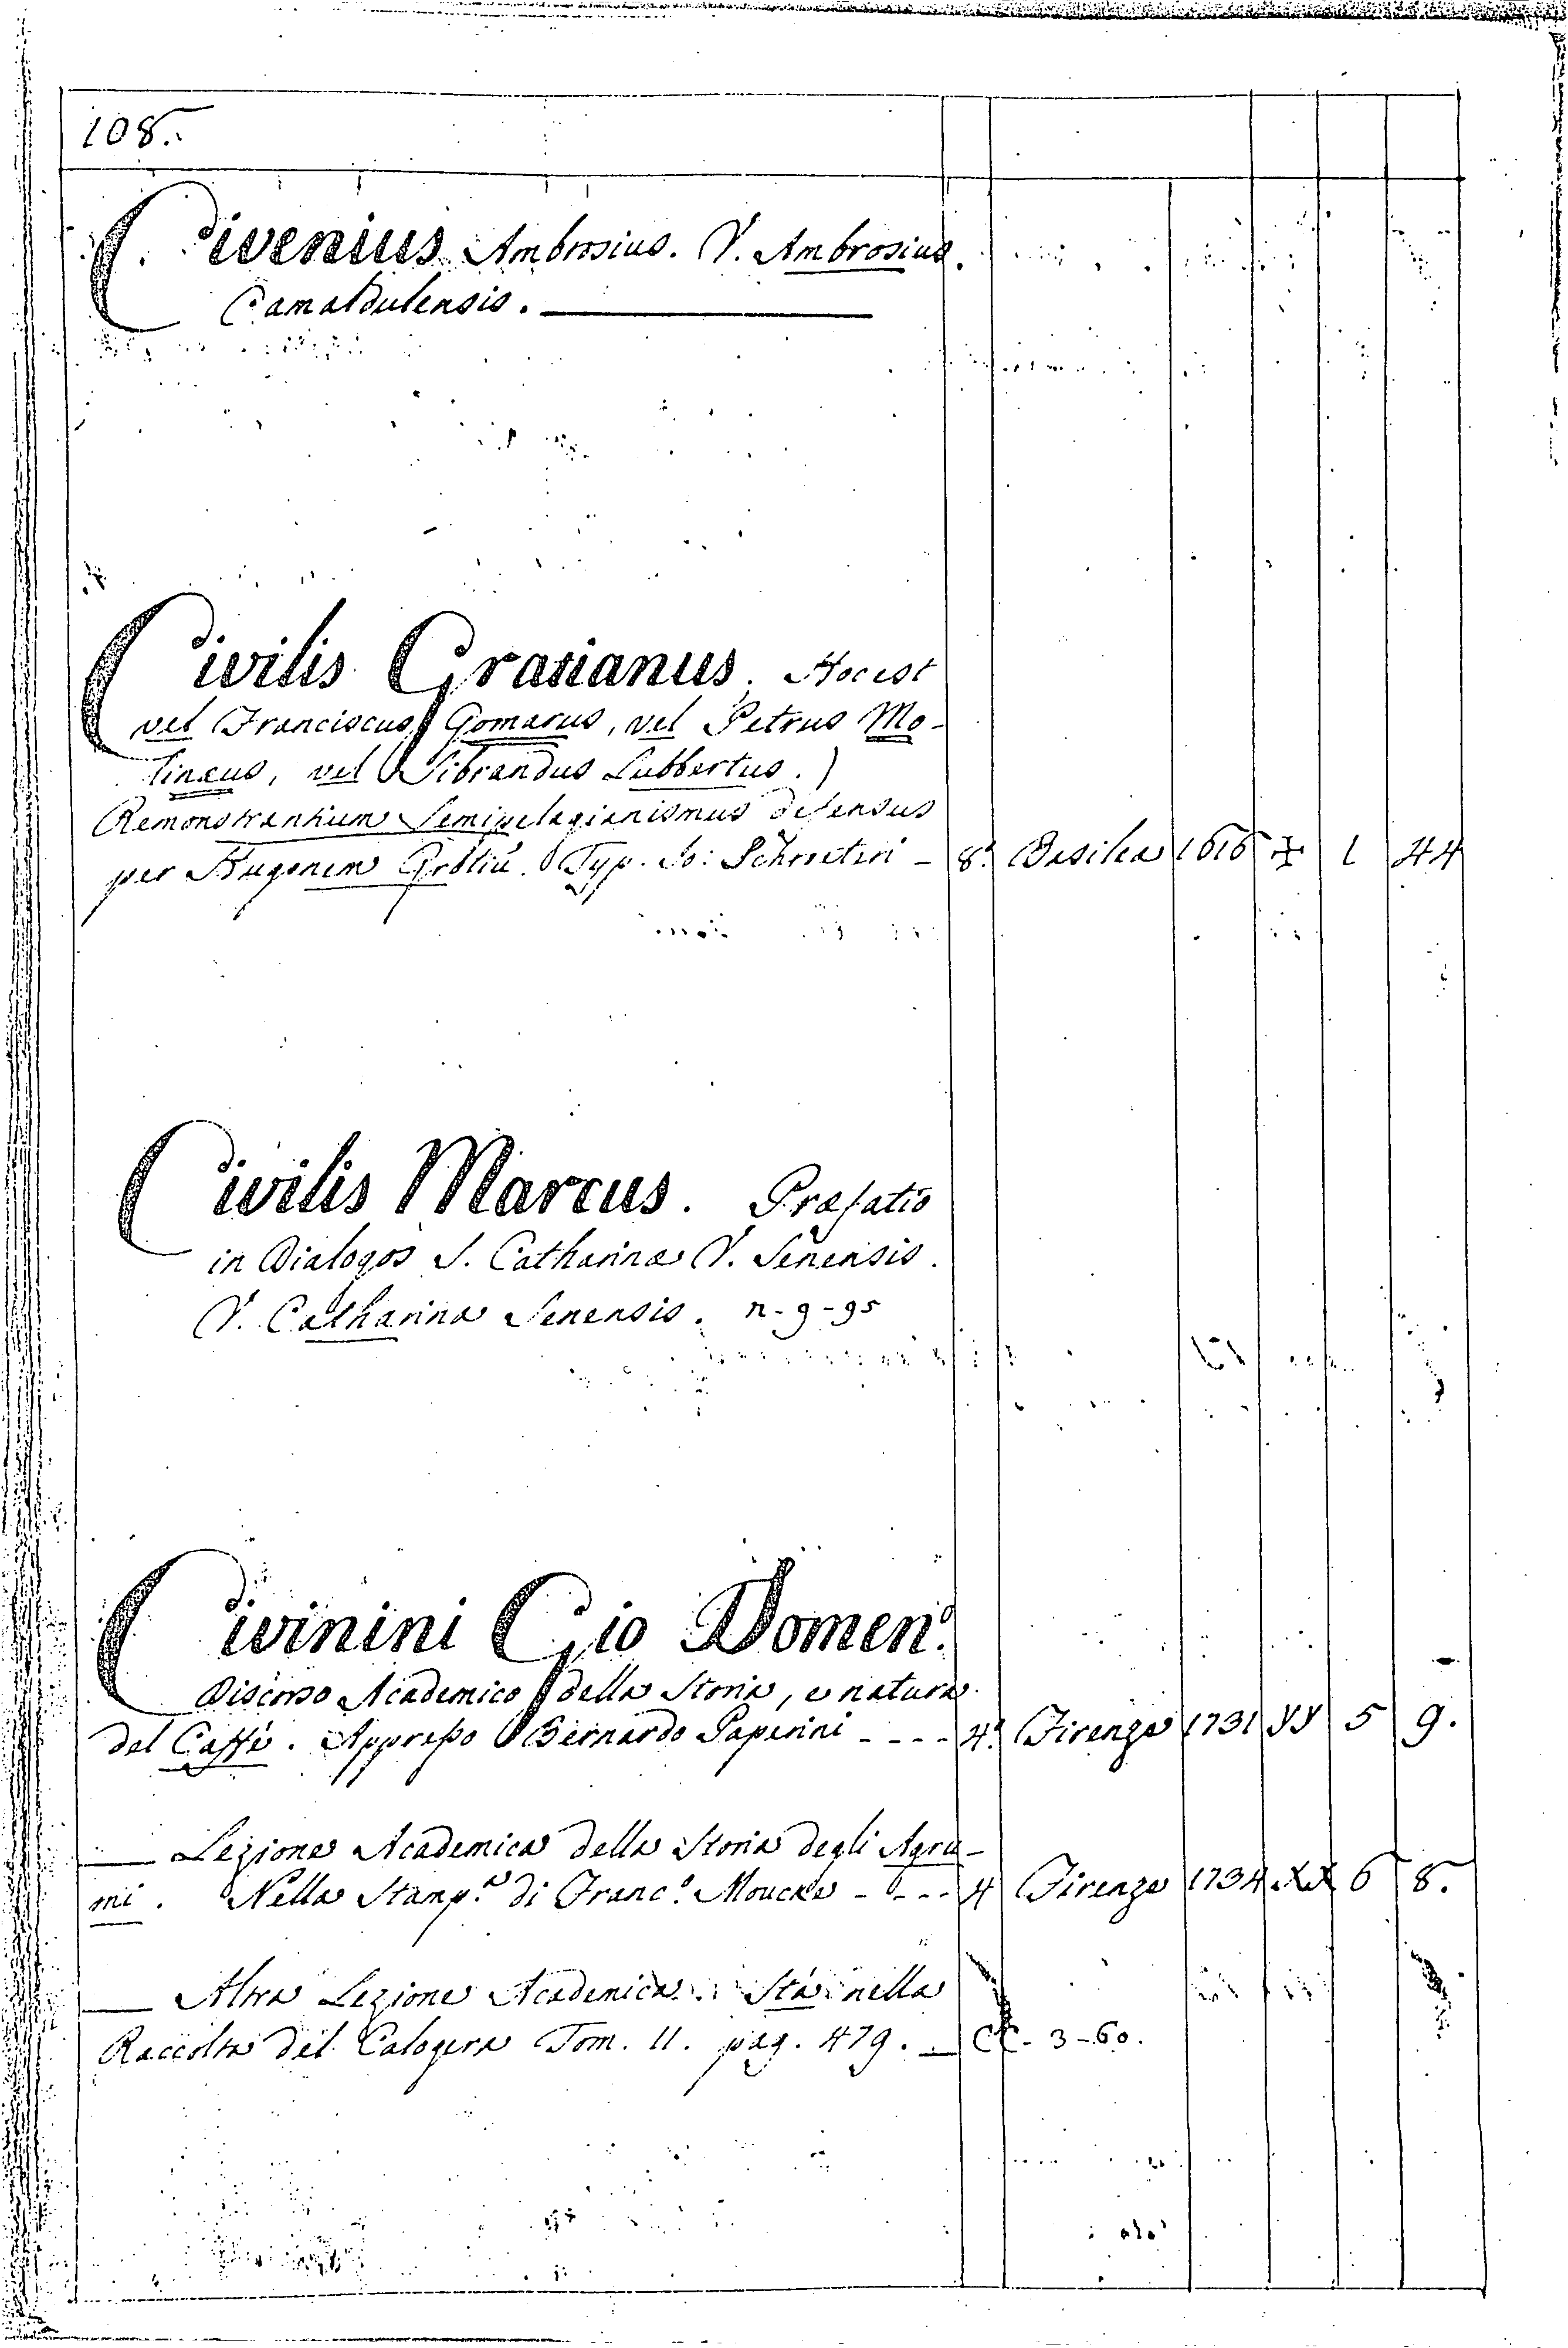 108.
Civenius Ambrosius. V. Ambrosius
Camaldulensis.
Civilis Gratianus. Hoc est
vel Franciscus Gomarus, vel Petrus Mo-
linæus, vel Sibrandus Lubbertus.)
Remonstrantium Semipelagianismus defensus
per Hugonem Grotiū. Typ. Jo: Schroeteri - 8.° Basilea 1616 ✠ 1 44
Civilis Marcus. Præfatio
in Dialogos S. Catharinæ V. Senensis.
V. Catharina Senensis. n-9-95
Civinini Gio Domen.°
Discorso Academico della Storia, e natura
del Caffè. Appresso Bernardo Paperini - - - - 4.° Firenze 1731 YY 5 9.
— Lezione Academica della Storia degli Agru-
mi. Nella Stamp.a di Franc.° Moucke - - - - 4 Firenze 1734 XX 6 8.
— Altra Lezione Academica. Sta nella
Raccolta del Calogera Tom. 11. pag. 479. — CC - 3 - 60.